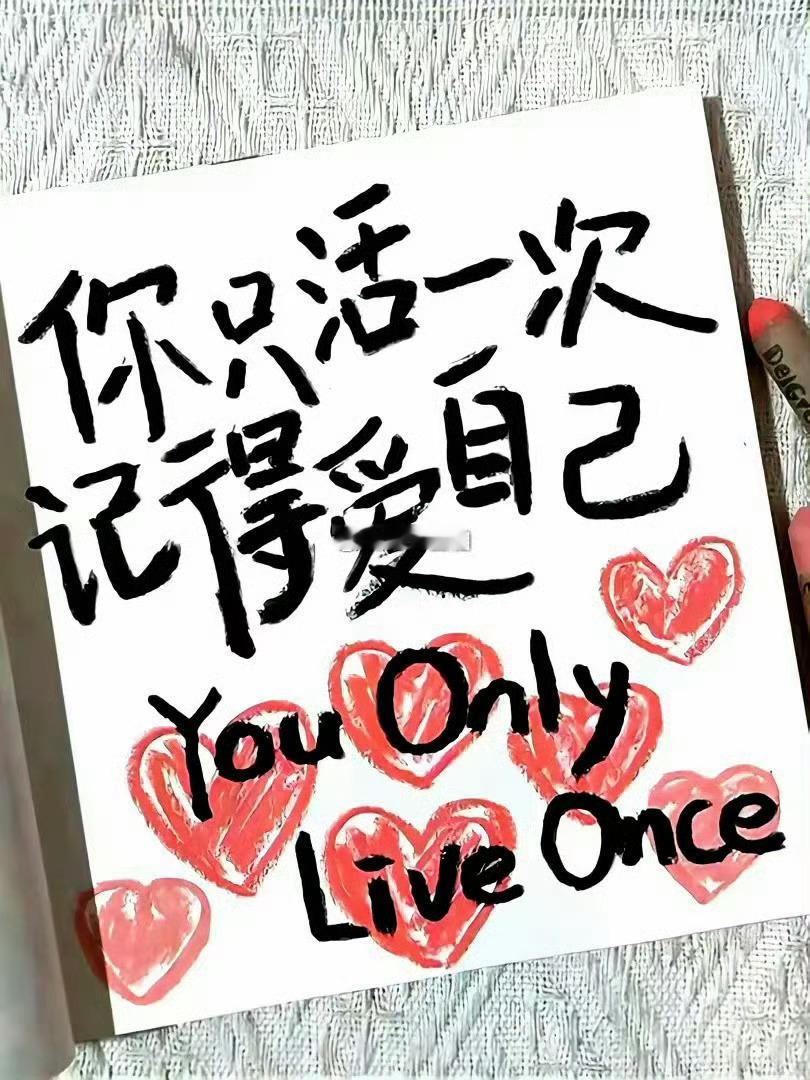 你只活一次
记得爱自己
You Only
Live Once